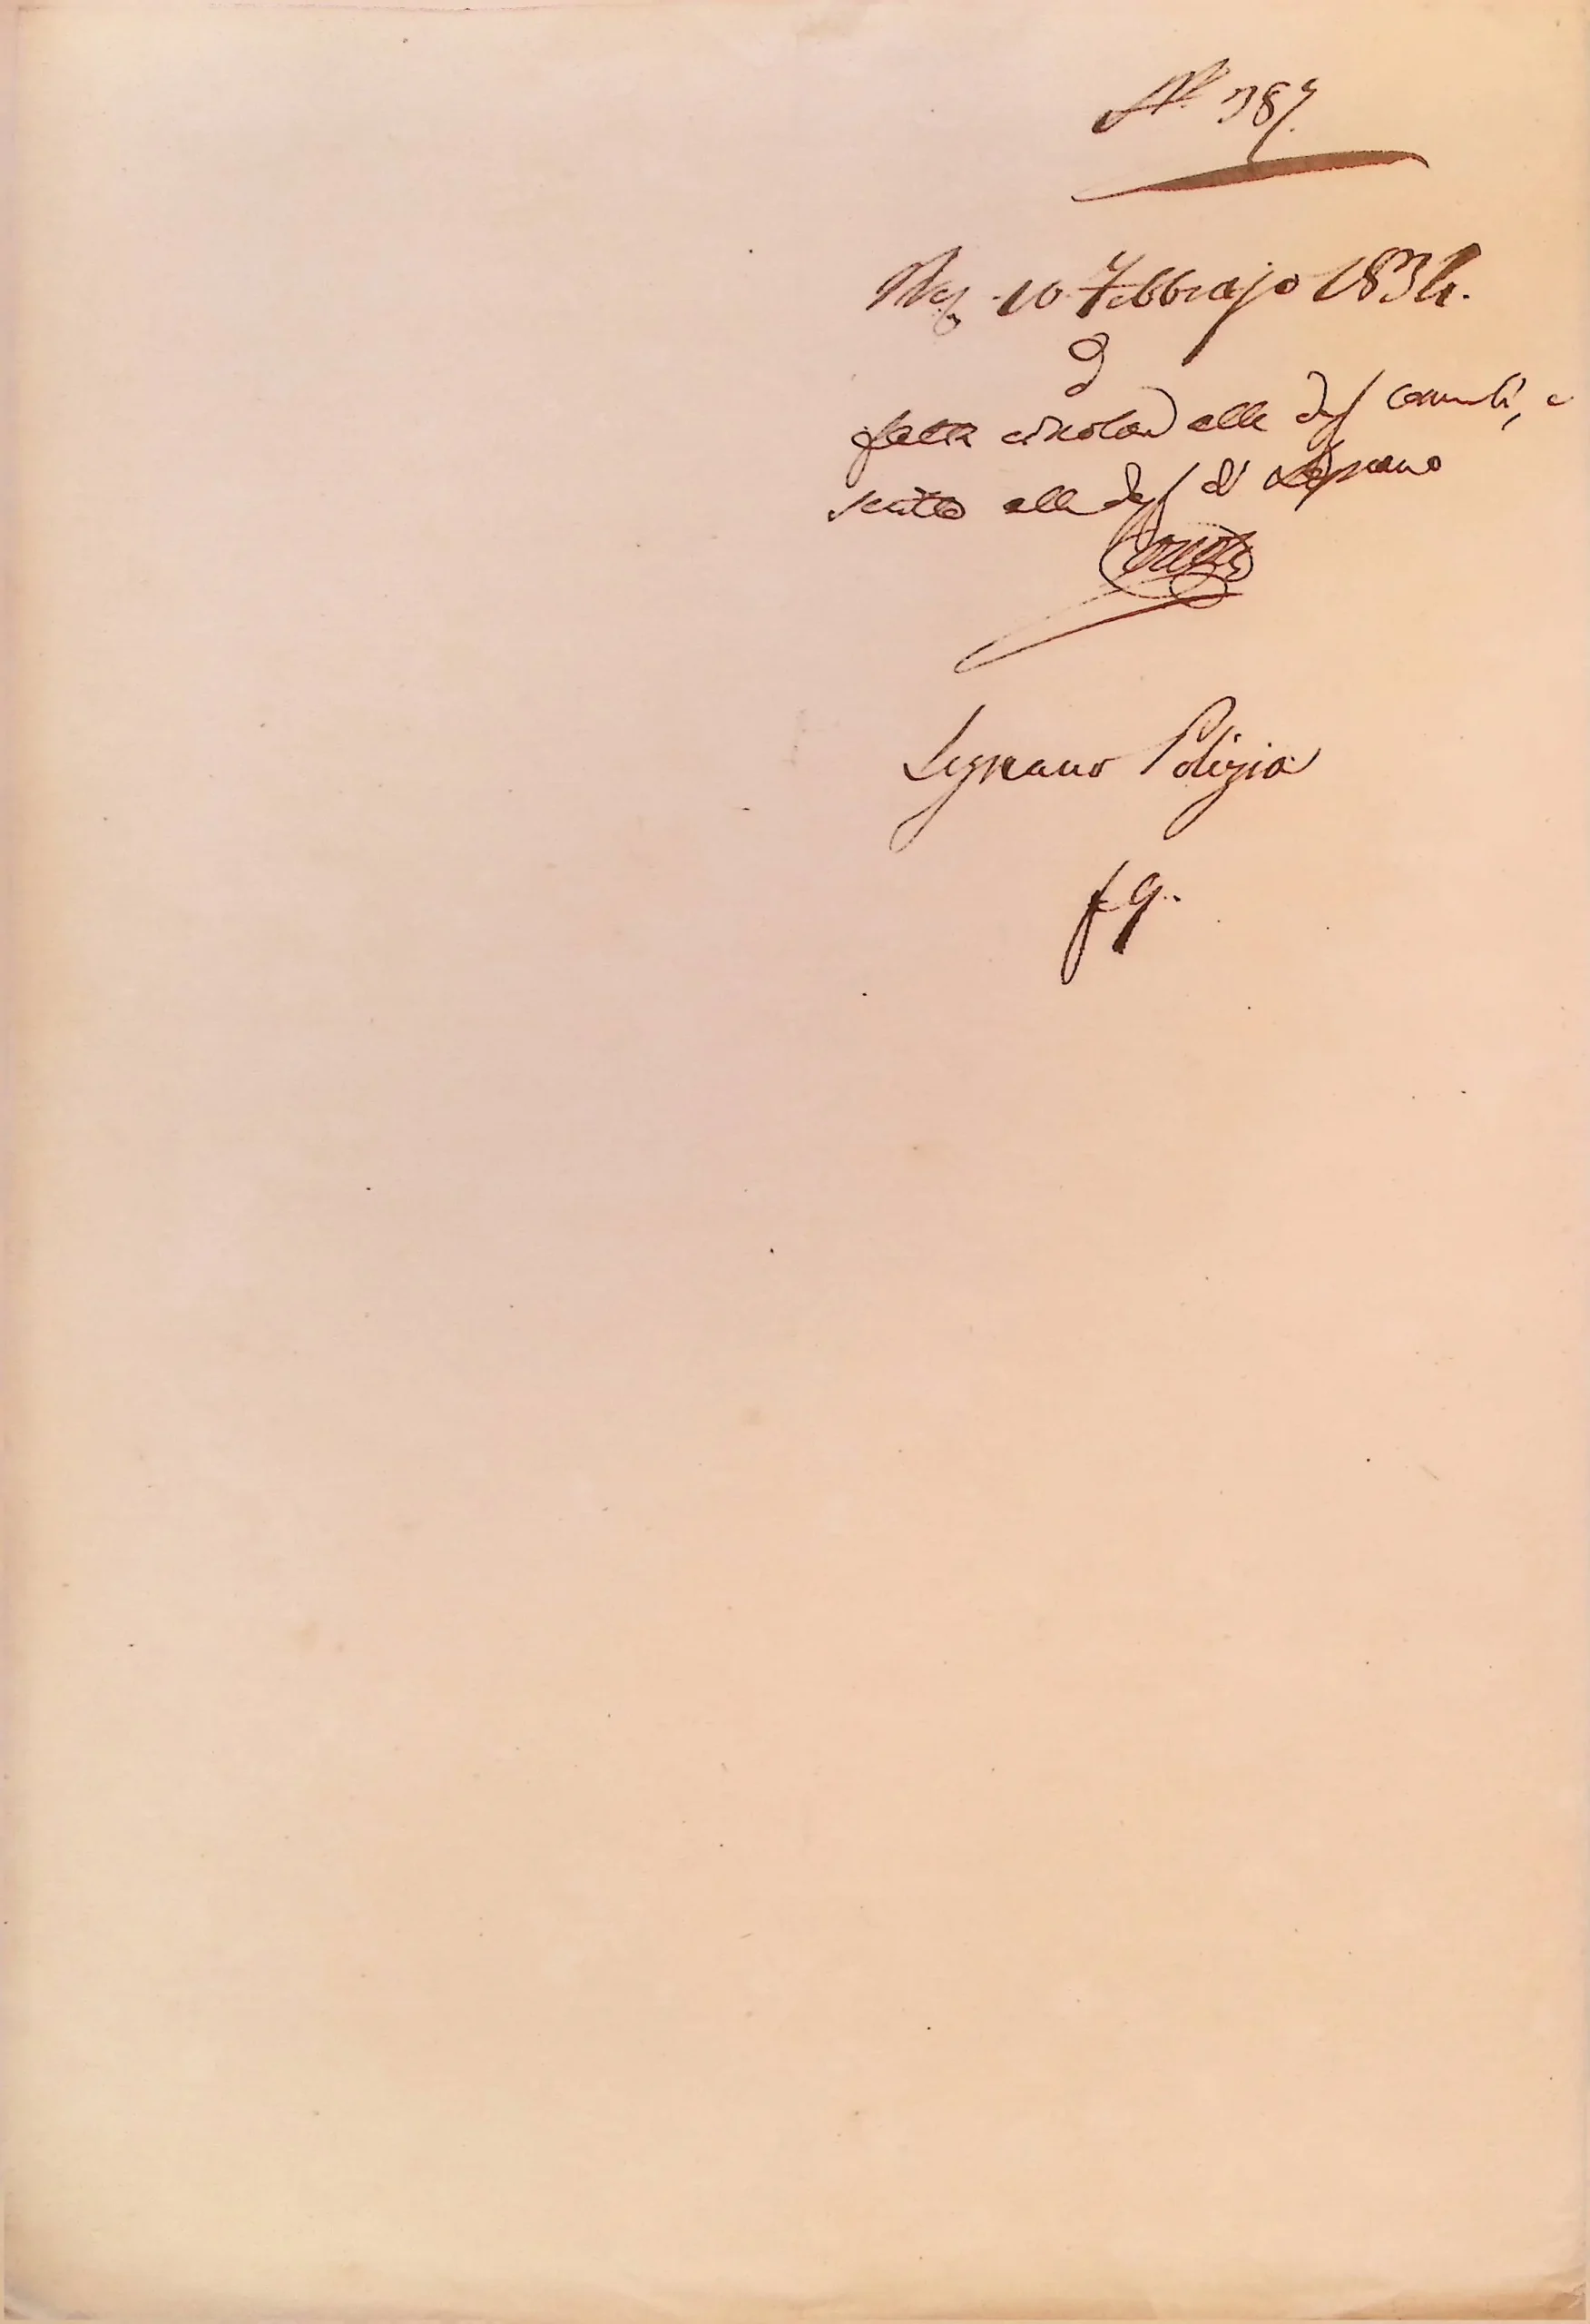 N.° 387.
10 Febbrajo 1834.
fatta circolare alle comunli, e
scritto alla di Legnano
Legnano Polizia
f 9.